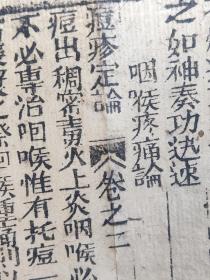 之如神奏功迅速
咽喉疼痛論
痘疹定論 卷之二
痘出稠密毒火上炎咽喉
不必專治咽喉惟有托痘